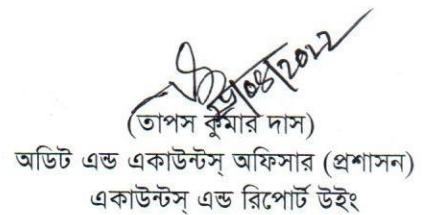 /08/2022
(তাপস কুমার দাস)
অডিট এন্ড একাউন্টস্ অফিসার (প্রশাসন)
একাউন্টস্ এন্ড রিপোর্ট উইং